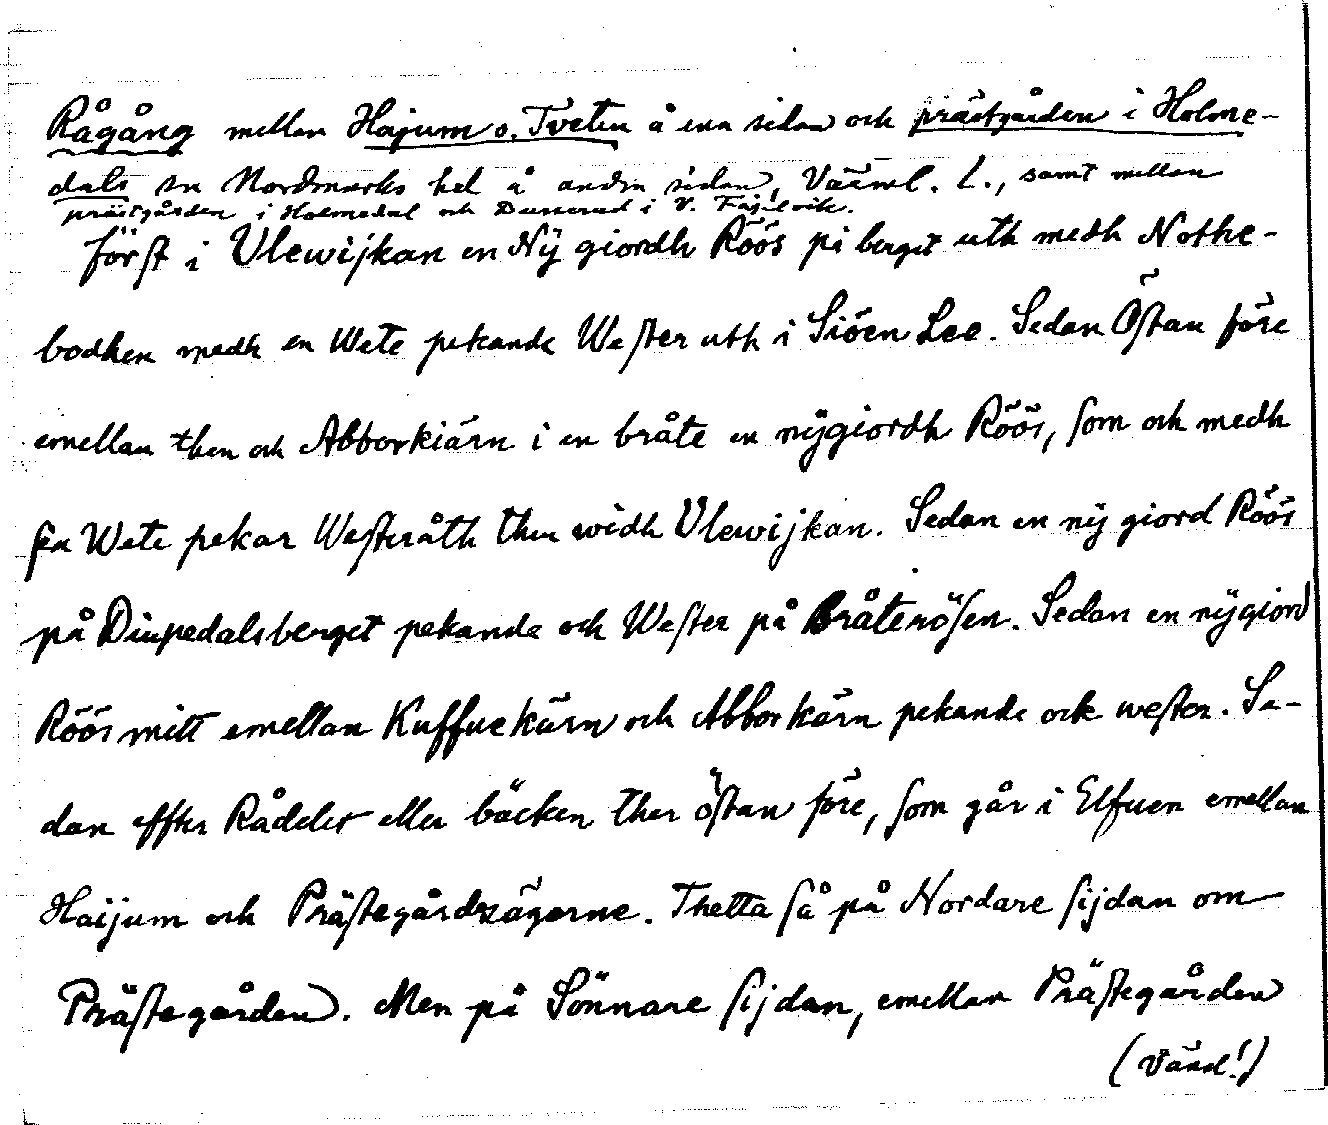 Rågång mellan Hajum o. Tveten å ena sidan och prästgården i Holme-
dals sn Nordmarks hd å andra sidan, Värml. l., samt mellan
prästgården i Holmedal och Dusserud i V. Fågelvik.
först i Ulewijkan en Nÿ giordh Röös på berget uth medh Nothe-
bodhen medh en Wete pekande Wester uth i Siöen Lee. Sedan Östan före
emellan then och Abborkiärn i en bråte en nÿgiordh Röös, som och medh
en Wete pekar Westeråth then widh Ulewijkan. Sedan en nÿ giord Röös
på Diupedalsberget pekande och Wester på Bråterösen. Sedan en nÿgiord
Röös mitt emellan Kuffuekärn och Abborkärn pekande ock wester. Se-
dan effter Rådelet eller bäcken ther östan före, som går i Elfuen emellan
Haijum och Prästegårdzägorne. Thetta så på Nordare sijdan om
Prästegården. Men på Sönnare sijdan, emellan Prästegården
(Vänd!)